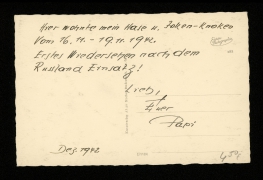 Hier wohnte mein Hase u. Joken-Knoken
Vom 16.11. - 19.11.1942.
Erstes Wiedersehen nach dem
Russland Einsatz!
Lieb,
Euer
Papi
Dez. 1942